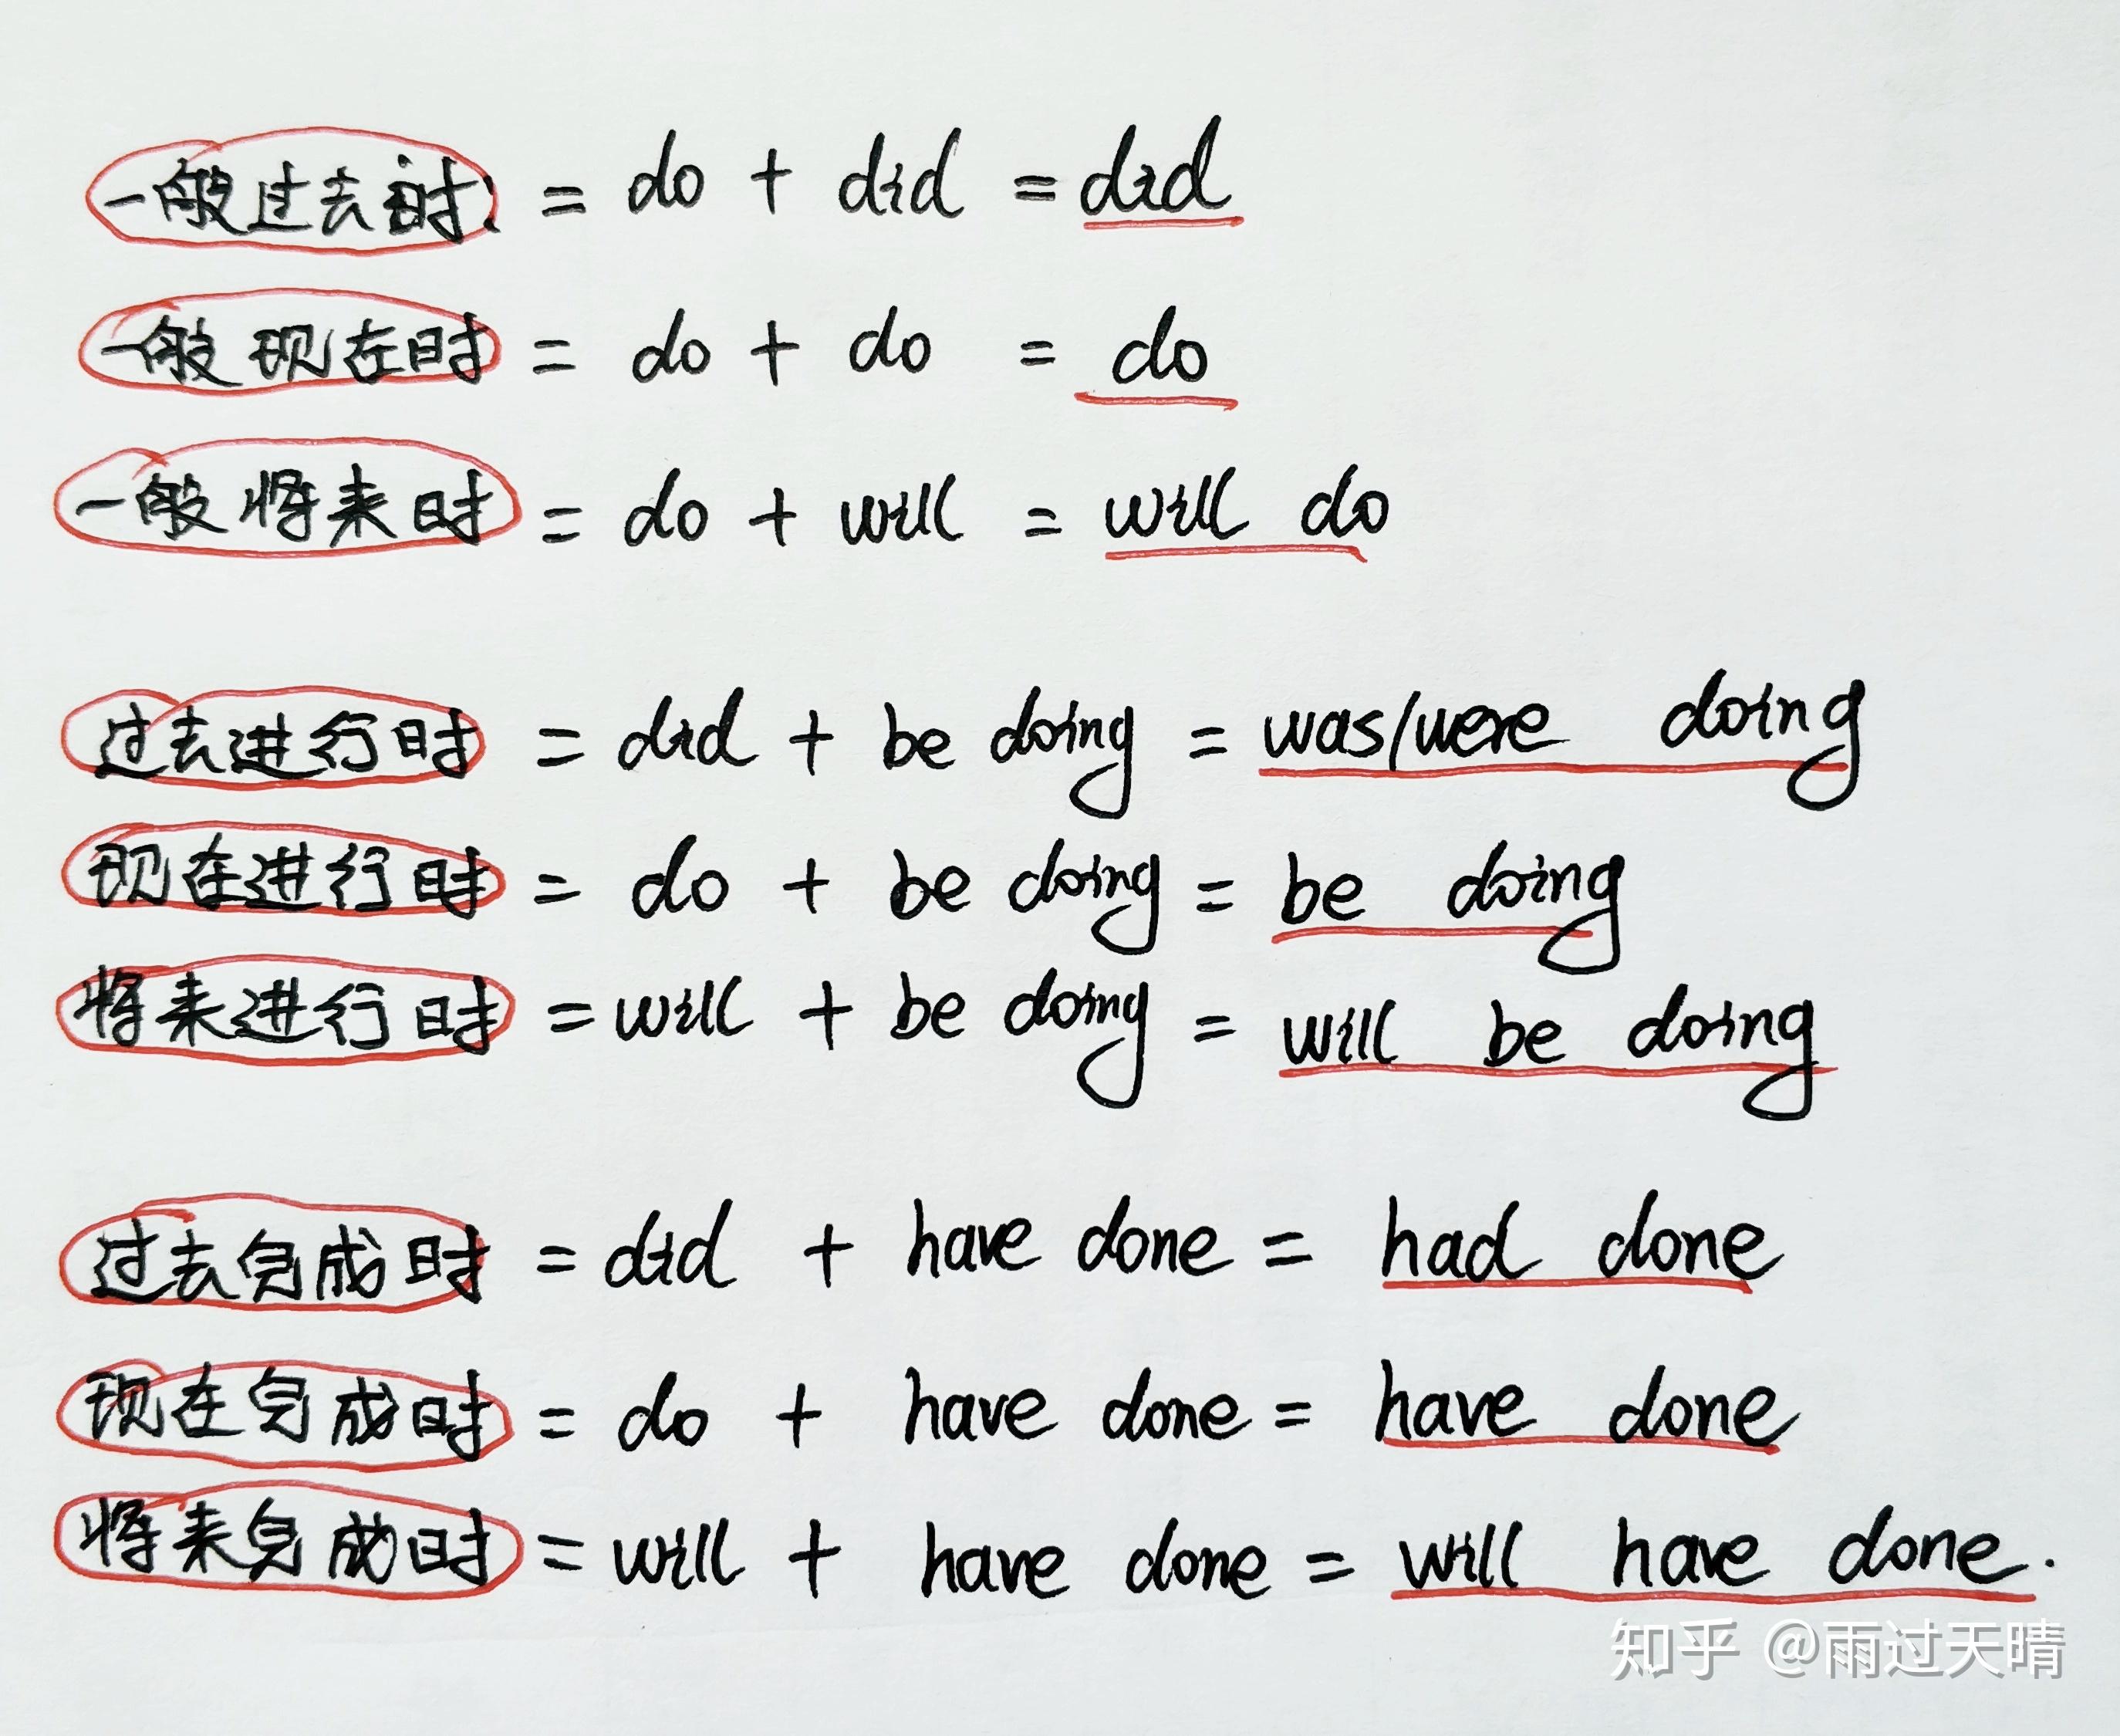 一般过去时: = do + did = did
一般现在时 = do + do = do
一般将来时 = do + will = will do
过去进行时 = did + be doing = was/were doing
现在进行时 = do + be doing = be doing
将来进行时 = will + be doing = will be doing
过去完成时 = did + have done = had done
现在完成时 = do + have done = have done
将来完成时 = will + have done = will have done.
知乎 @雨过天晴